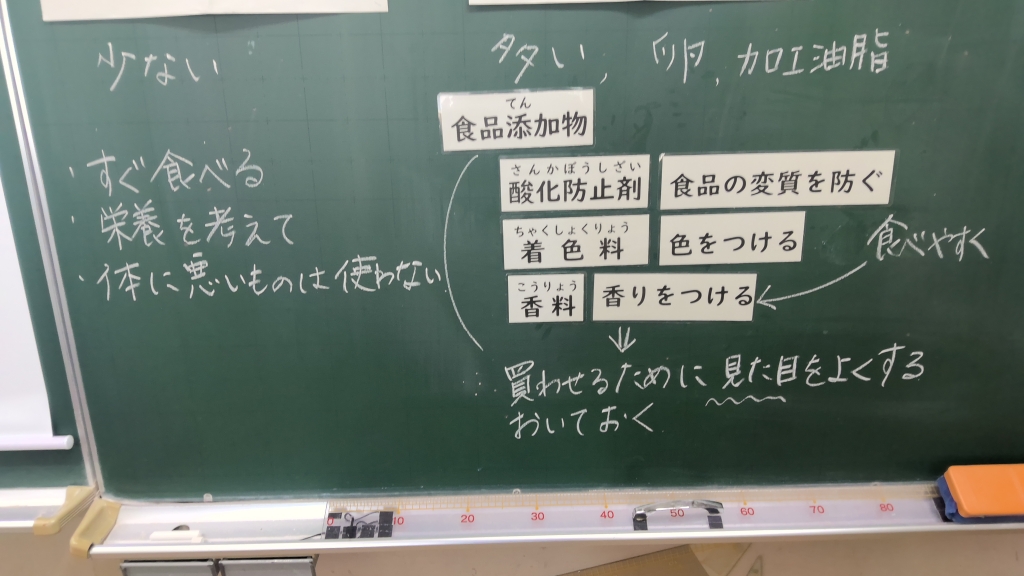 少ない
・すぐ食べる
・栄養を考えて
・体に悪いものは使わない
多い, 卵, 加工油脂
てん
食品添加物
さんかぼうしざい
酸化防止剤 食品の変質を防ぐ
ちゃくしょくりょう
着色料 色をつける
食べやすく
こうりょう
香料 香りをつける
買わせるために見た目をよくする
おいておく
0 10 20 30 40 50 60 70 80